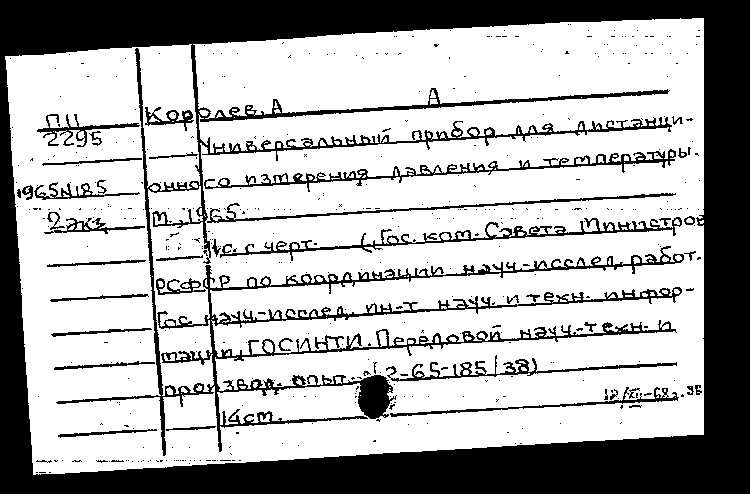 Королев, А А
П11
2295
Универсальный прибор для дистанци-
1965N185 онного измерения давления и температуры.
2 экз М., 1965.
4с. с черт. (Гос. ком. Совета Министров
РСФСР по координации науч.-исслед. работ.
Гос науч.-исслед. ин-т науч. и техн. инфор-
мации, ГОСИНТИ. Передовой науч.-техн. и
производ. опыт. 2-65-185/38)
14ст.
12/XII-68г.